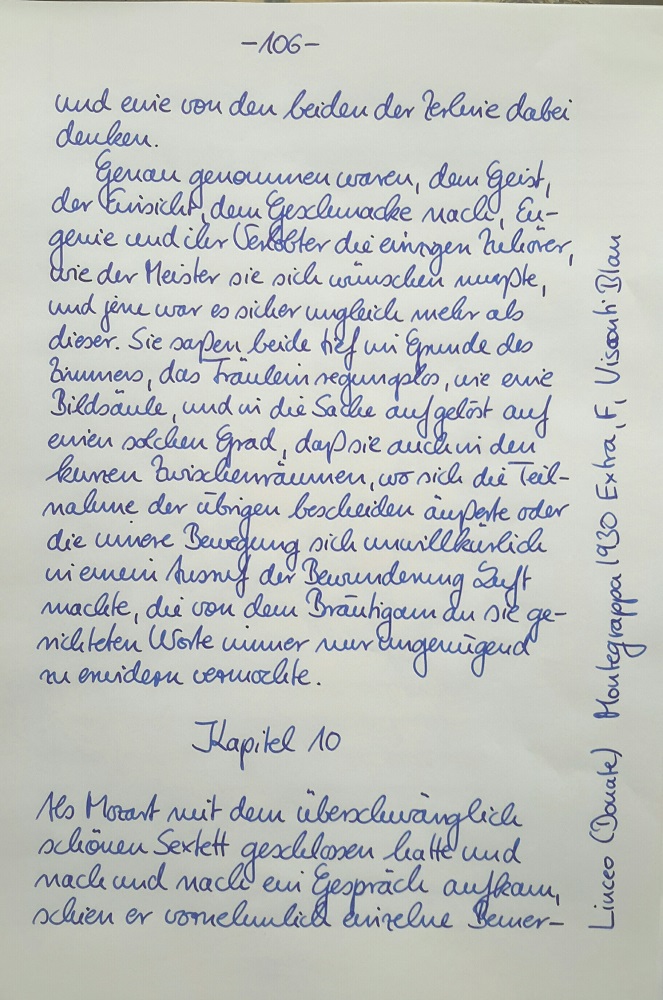 -106-
und eine von den beiden der Zerline dabei
denken.
Genau genommen waren, dem Geist,
der Einsicht, dem Geschmacke nach, Eu-
genie und ihr Verlobter die einzigen Zuhörer,
wie der Meister sie sich wünschen mußte,
und jene war es sicher ungleich mehr als
dieser. Sie saßen beide tief im Grunde des
Zimmers, das Fräulein regungslos, wie eine
Bildsäule, und in die Sache aufgelöst auf
einen solchen Grad, daß sie auch in den
kurzen Zwischenräumen, wo sich die Teil-
nahme der übrigen bescheiden äußerte oder
die innere Bewegung sich unwillkürlich
in einem Ausruf der Bewunderung Luft
machte, die von dem Bräutigam an sie ge-
richteten Worte immer nur ungenügend
zu erwidern vermochte.
Kapitel 10
Als Mozart mit dem überschwänglich
schönen Sextett geschlossen hatte und
nach und nach ein Gespräch aufkam,
schien er vornehmlich einzelne Bemer-
Linceo (Donate) Montegrappa 1930 Extra, F, Visconti Blau